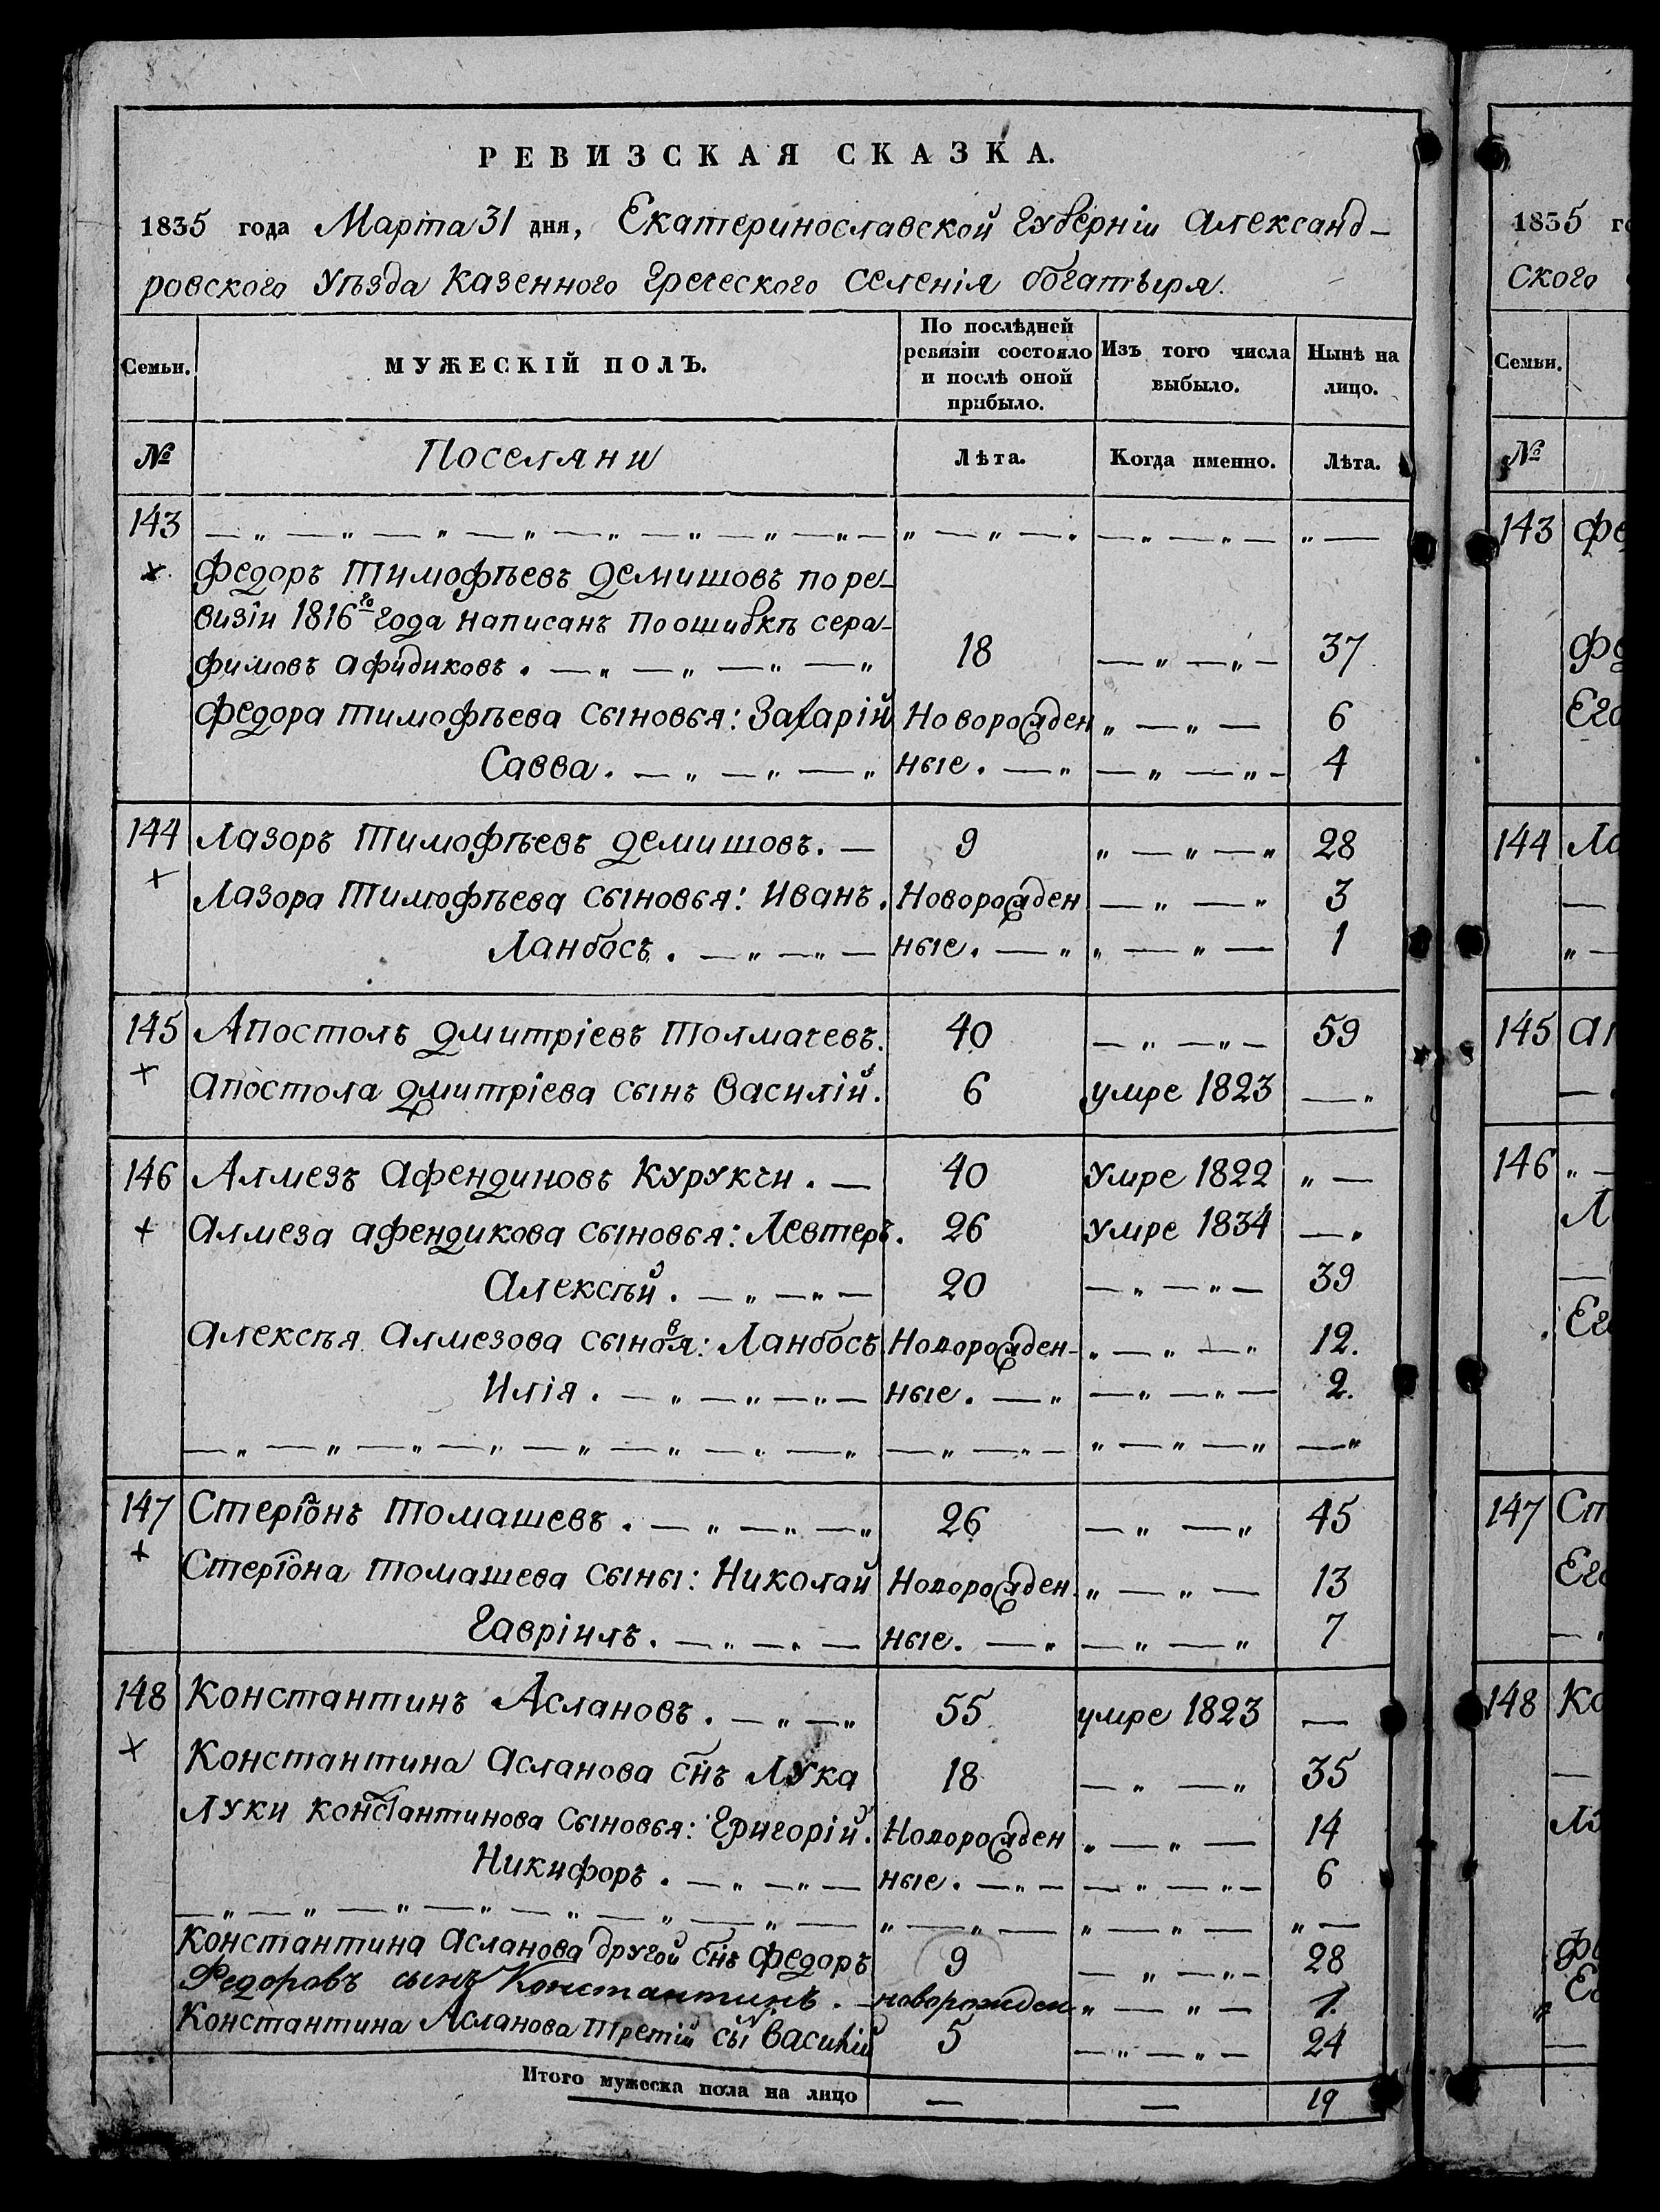 РЕВИЗСКАЯ СКАЗКА.
1835 года Марта 31 дня, Екатеринославской Губерніи Александ-
ровского Уѣзда Казенного Греческого Селенія богатыря.
Семьи. МУЖЕСКІЙ ПОЛЪ. По послѣдней ревизіи состояло и послѣ оной прибыло. Изъ того числа выбыло. Нынѣ на лицо.
№ Поселяни Лѣта. Когда именно. Лѣта.
143
Федоръ Тимофѣевъ Демишовъ по ре-
визіи 1816го года написанъ по ошибкѣ сера-
фимовъ афидиковъ. 18 37
Федора Тимофѣева сыновья: Захарій Новорожден 6
Савва. ные. 4
144 Лазоръ Тимофѣевъ Демишовъ. 9 28
Лазора Тимофѣева сыновья: Иванъ. Новорожден 3
Ланбосъ. ные. 1
145 Апостолъ Дмитріевъ Толмачевъ. 40 59
Апостола Дмитріева сынъ Василій. 6 умре 1823
146 Алмезъ Афендиновъ Курукчи. 40 Умре 1822
Алмеза афендикова сыновья: Левтеръ. 26 Умре 1834
Алексѣй. 20 39
Алексѣя Алмезова сыновя: Ланбосъ Новорожден- 12.
Илія. ные. 2.
147 Стеріонъ Томашевъ. 26 45
Стеріона Томашева сыны: Николай Новорожден. 13
Гавріилъ. ные. 7
148 Константинъ Аслановъ. 55 умре 1823
Константина Асланова снъ Лука 18 35
Луки Константинова сыновья: Григорій. Новорожден 14
Никифоръ. ные. 6
Константина Асланова другой снъ Федоръ 9 28
Федоровъ сынъ Константинъ. новорожден 1.
Константина Асланова Третій сы Василій 5 24
Итого мужеска пола на лицо 19
1835 го
ского
Семьи.
№
143 Фе
Фе
Его
144 Ла
145 Ап
146
Л
Ег
147 Ст
Его
148 Ко
Лу
Фе
Ег